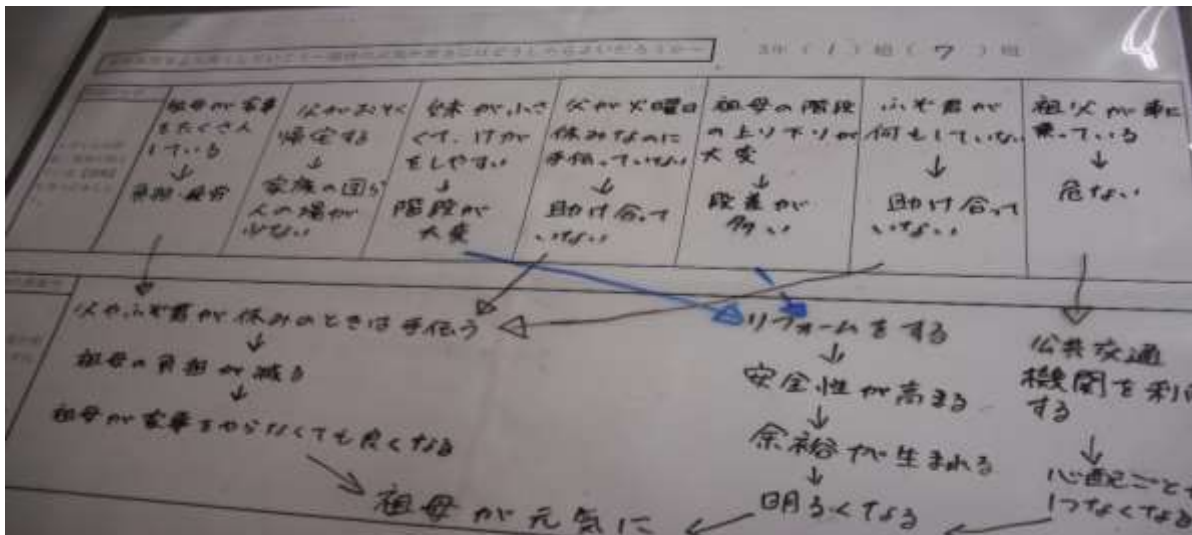 3年（1）組（7）班
祖母が家事
をたくさん
している
↓
負担・疲労
父がおそく
帰宅する
↓
家族の団らん
の場が
少ない
妹が小さ
くて、けが
をしやすい
↓
階段が
大変
父が火曜日
休みなのに
手伝っていない
↓
助け合って
いない
祖母の階段
の上り下りが
大変
↓
段差が
多い
ふぞ君が
何もしていない
↓
助け合って
いない
祖父が車に
乗っている
↓
危ない
父やふぞ君が休みのときは手伝う
↓
祖母の負担が減る
↓
祖母が家事をやらなくても良くなる
リフォームをする
↓
安全性が高まる
↓
余裕が生まれる
↓
明るくなる
公共交通
機関を利用
する
↓
心配ごとが
1つなくなる
祖母が元気に